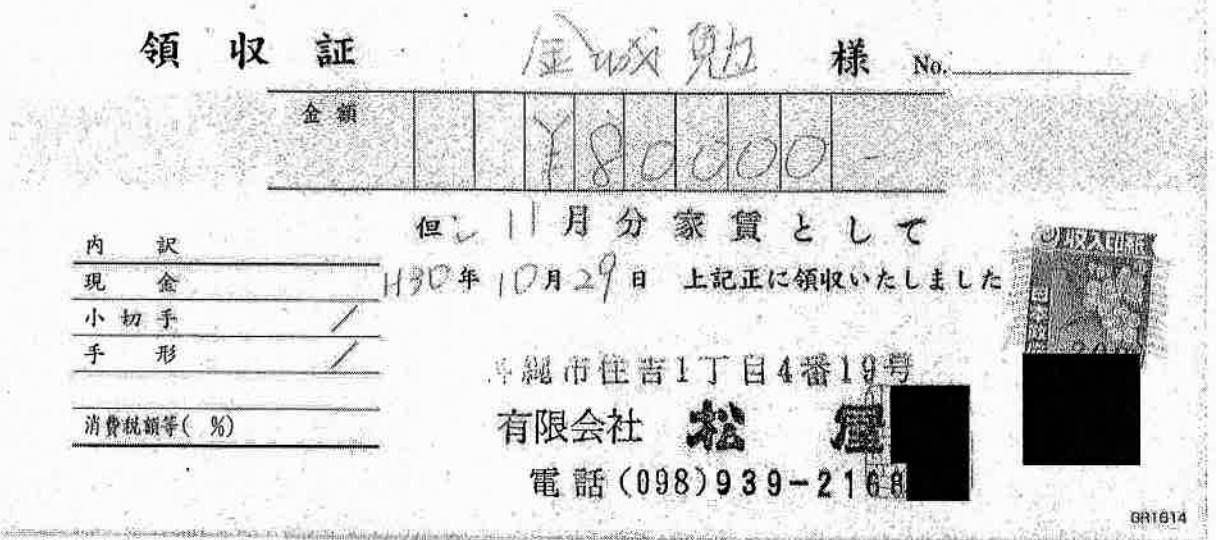 領収証 金城勉 様 No.
金額 ¥80000-
但し 11月分家賃として
H30年10月29日 上記正に領収いたしました
内訳
現金
小切手 /
手形 /
消費税額等( %)
収入印紙
沖縄市住吉1丁目4番19号
有限会社 松屋
電話(098)939-2168
GR1614